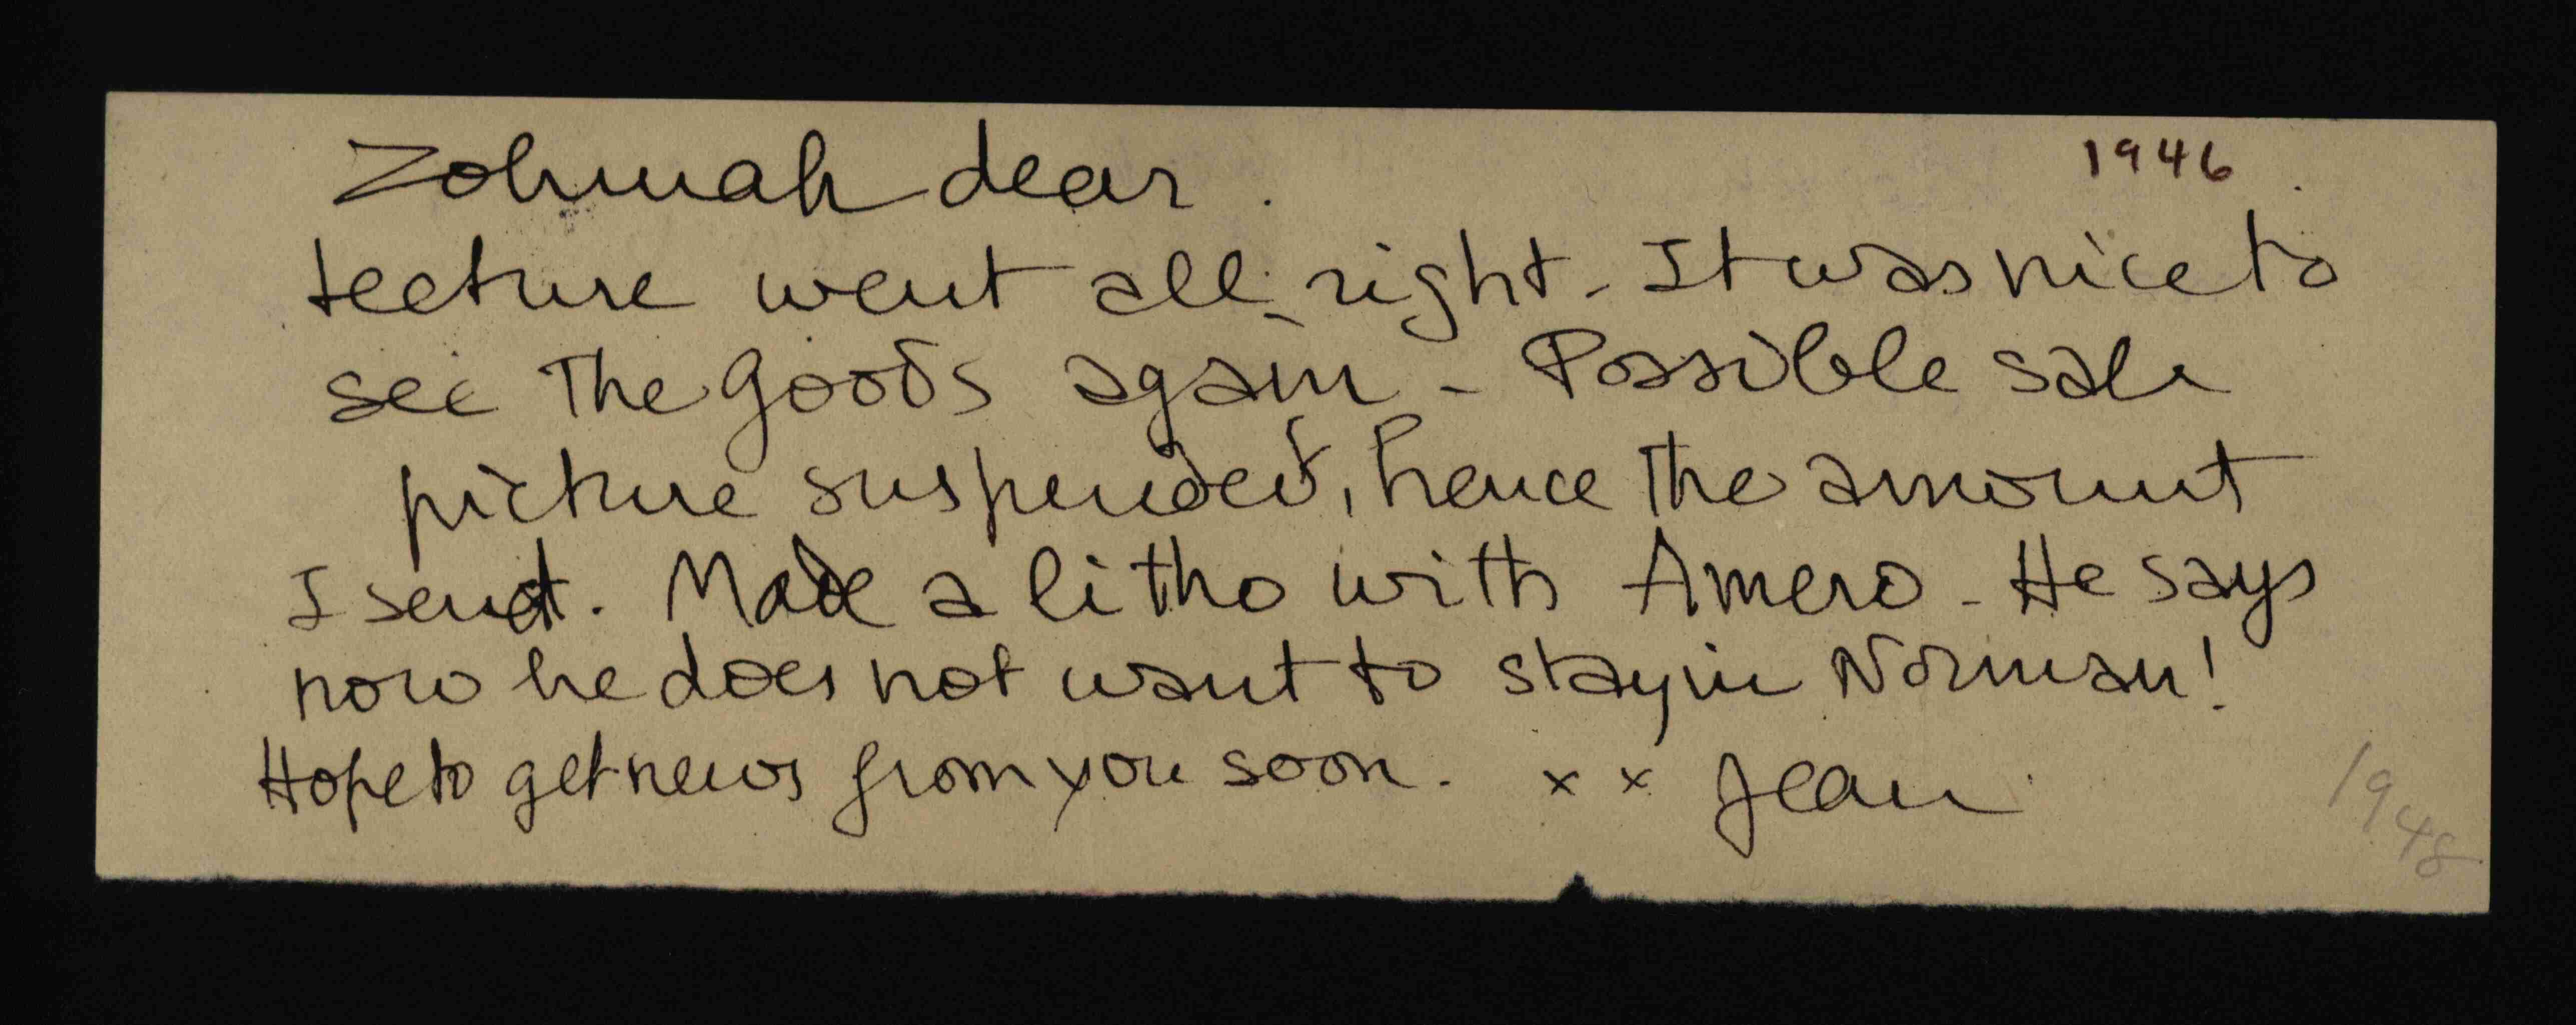 Zohmah dear.
1946
lecture went all right - It was nice to
see the Goods again - Possible sale
picture suspended, hence the amount
I send. Made a litho with Amero - He says
now he does not want to stay in Norman!
Hope to get news from you soon. x x Jean
1948